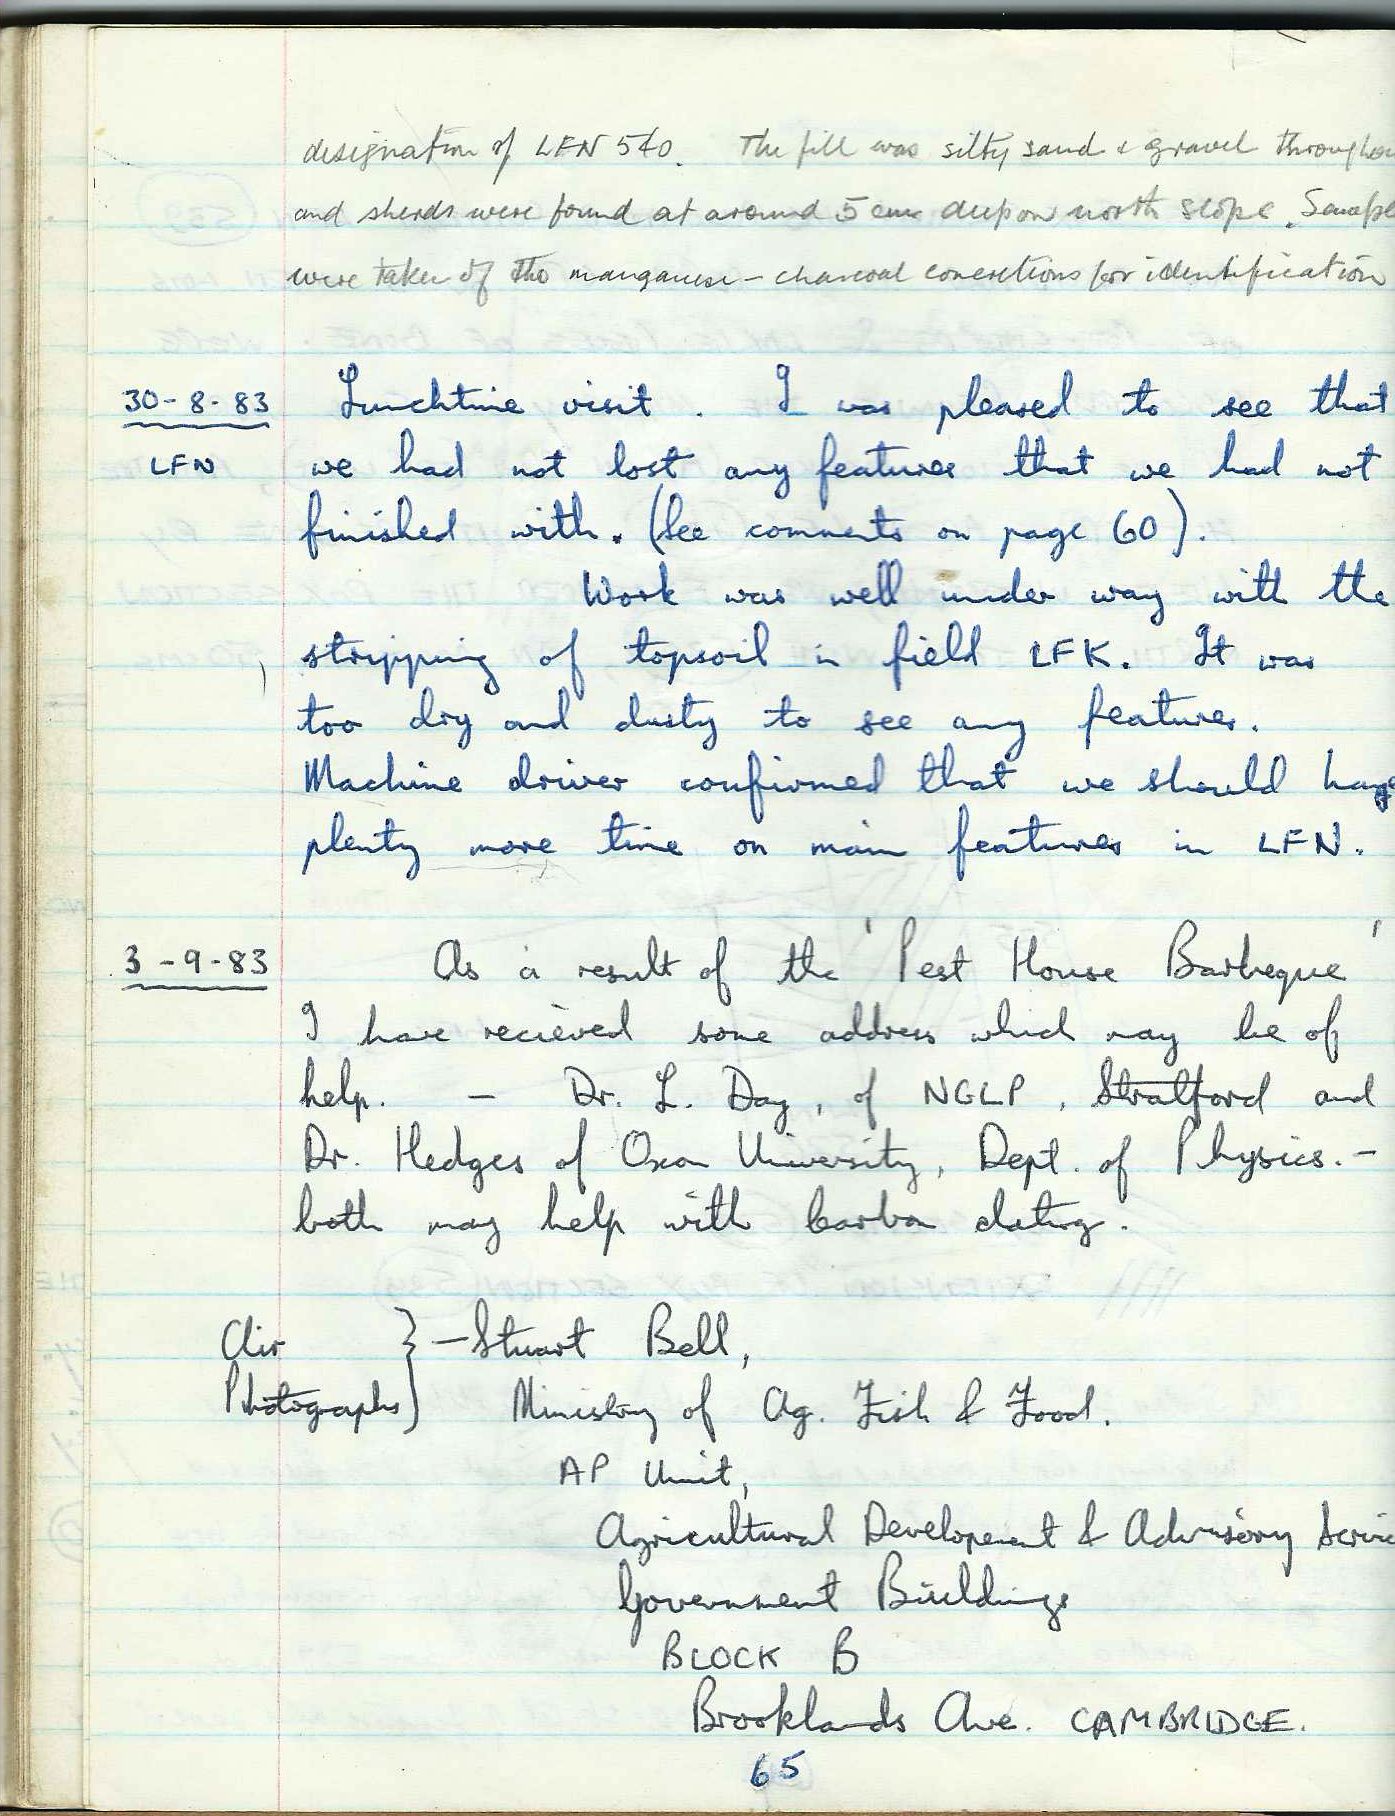 designation of LFN 540. The fill was silty sand & gravel throughou
and sherds were found at around 5 cms deep on north slope. Sample
were taken of the manganese - charcoal concretions for identification
30-8-83 Lunchtime visit. I was pleased to see that
LFN we had not lost any features that we had not
finished with. (See comments on page 60).
Work was well under way with the
stripping of topsoil in field LFK. It was
too dry and dusty to see any features.
Machine driver confirmed that we should have
plenty more time on main features in LFN.
3-9-83 As a result of the 'Pest House Barbeque'
I have recieved some address which may be of
help. - Dr. L. Day, of NGLP, Stratford and
Dr. Hedges of Oxon University, Dept. of Physics. -
both may help with Carbon dating.
Air } - Stuart Bell,
Photographs } Ministry of Ag. Fish & Food.
AP Unit,
Agricultural Development & Advisory Servic
Government Buildings
BLOCK B
Brooklands Ave. CAMBRIDGE.
65